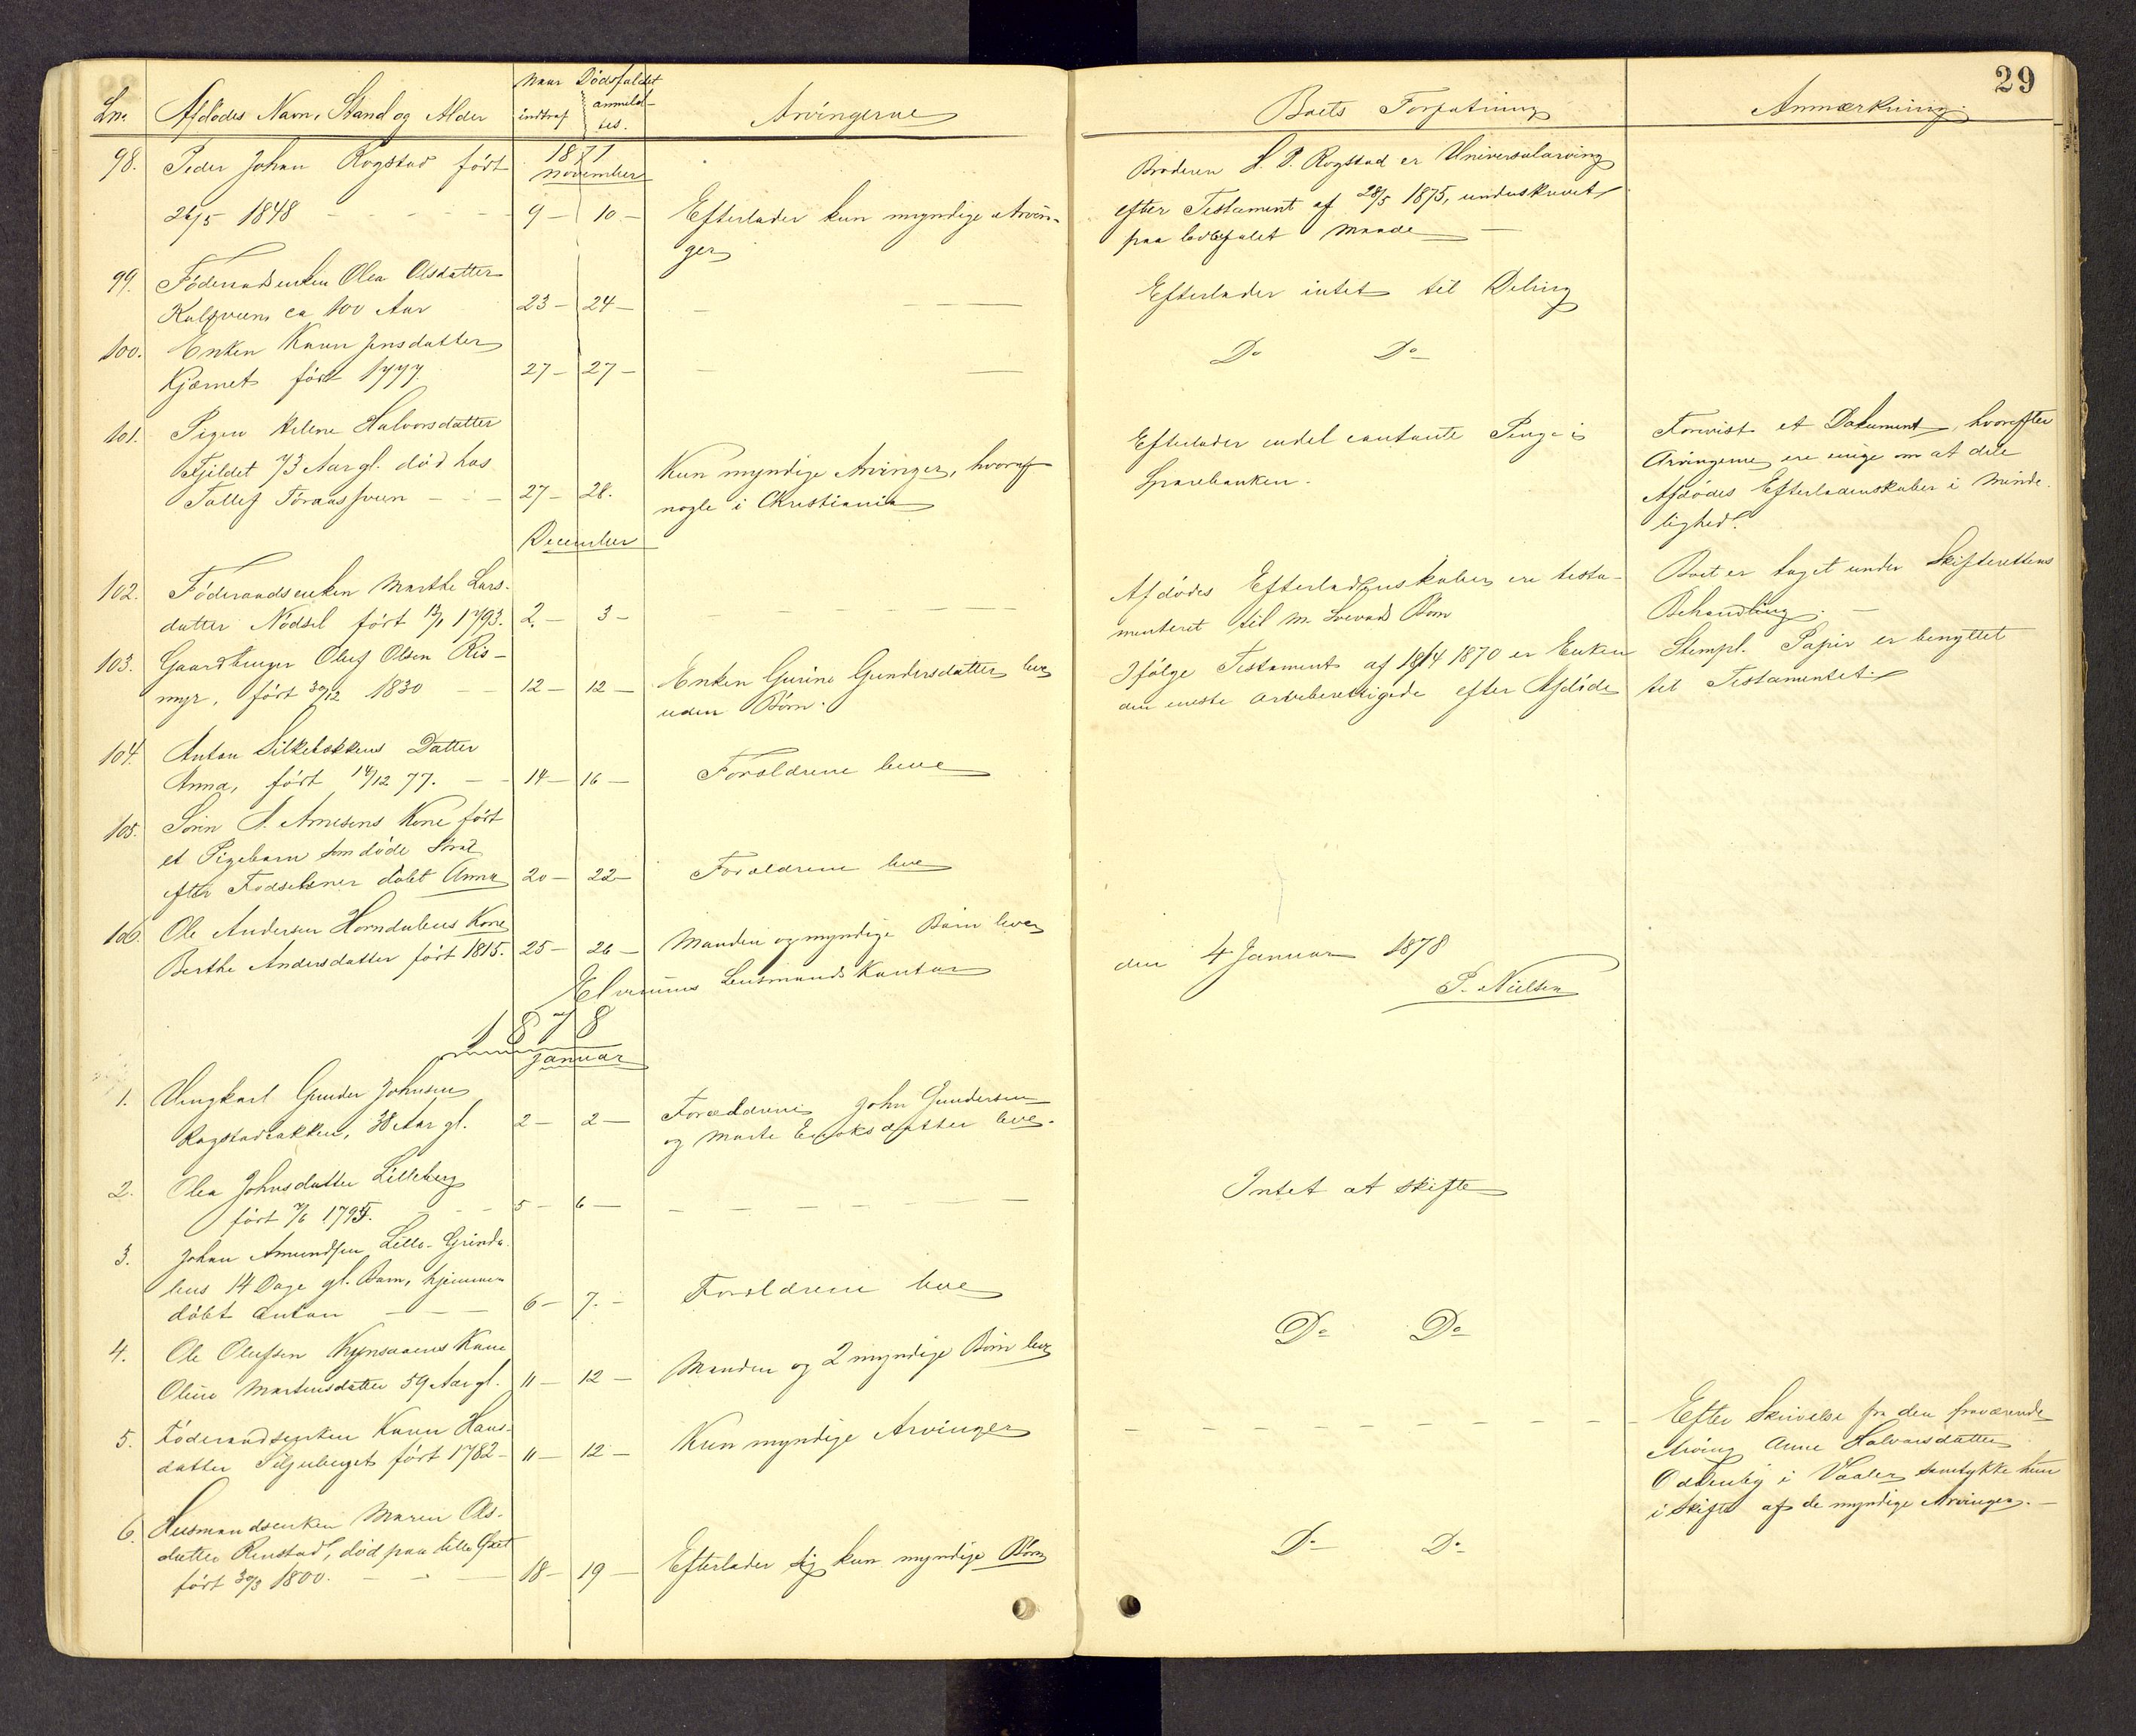 29
Lnr. Afdødes Navn, Stand og Alder
Naar Dødsfaldet
indtraf anmeldtes.
Arvingerne
Boets Forfatning
Anmærkning.
1877
November
98. Peder Johan Rogstad født
26/5 1848 - - - - 9 - 10 - Efterlader kun myndige Arvin-
ger
Broderen L. P. Rogstad er Universalarving
efter Testament af 28/5 1875, underskrevet
paa lovbefalet Maade -
99. Føderaadsenken Olea Olsdatter
ca 100 Aar 23 - 24 -
Efterlader intet til Deling
100. Enken Karen Jensdatter
Kjærnet født 1777. 27 - 27 -
Do Do
101. Pigen Helene Halvorsdatter
Fjeldet 73 Aar gl. død hos
Tollef 27 - 28.
Kun myndige Arvinger, hvoraf
nogle i Christiania
Efterlader endel contante Penge i
Sparebanken.
Forevist et Dokument, hvorefter
Arvingerne ere enige om at dele
Afdødes Efterladenskaber i Minde-
lighed.
December
102. Føderaadsenken Marthe Lars-
datter Nødsel født 1793. 2. - 3 -
Afdødes Efterladenskaber ere testa-
menteret til M. Børn
Boet er taget under Skifterettens
Behandling. -
103. Gaardbruger Oluf Olsen Ris-
myr, født 30/12 1830 - - 12 - 12 -
Enken Gurine Gundersdatter lever
uden Børn.
Ifølge Testament af 18/4 1870 er Enken
den eneste arveberettigede efter Afdøde
Stempl. Papir er benyttet
til Testamentet.
104. Anton Silkebækkens Datter
Anna, født 14/12 77. - - 14 - 16 -
Forældrene leve
105. Søren A. Arnesens Kone født
et Pigebarn som døde strax
efter Fødselen døbt Anna 20 - 22
Forældrene leve
106. Ole Andersen Horndalens Kone
Berthe Andersdatter født 1815. 25 - 26 -
Manden og myndige Børn lever
Elverums Lensmands Kontor
den 4 Januar 1878
P. Nielsen
1878
Januar
1. Ungkarl Gunder Johnsen
Rogstadbakken, 38 Aar gl. 2 - 2 -
Forældrene John Gundersen
og Marte leve.
2. Olea Johnsdatter Lilleberg
født 7/6 1795. - - 5 - 6 -
Intet at skifte
3. Johan Amundsen Lille-Grinda-
lens 14 Dage gl. Barn, hjemme-
døbt Anton - - - 6 - 7. -
Forældrene leve
Do Do
4. Ole Olufsen Kynsaaens Kone
Oline Martinsdatter 59 Aar gl. 11 - 12 -
Manden og 2 myndige Børn leve
5. Føderaadsenken Karen Hans-
datter Siljuberget født 1782 - 11 - 12 -
Kun myndige Arvinger
Efter Skrivelse fra den fraværende
Arving Anne Halvorsdatter
i Vaaler samtykke hun
i Skifte af de myndige Arvinger. -
6. Husmandsenken Maren Ols-
datter Renstad, død paa lille
født 30/3 1800. - - - 18 - 19 -
Efterlader sig kun myndige Børn
Do Do